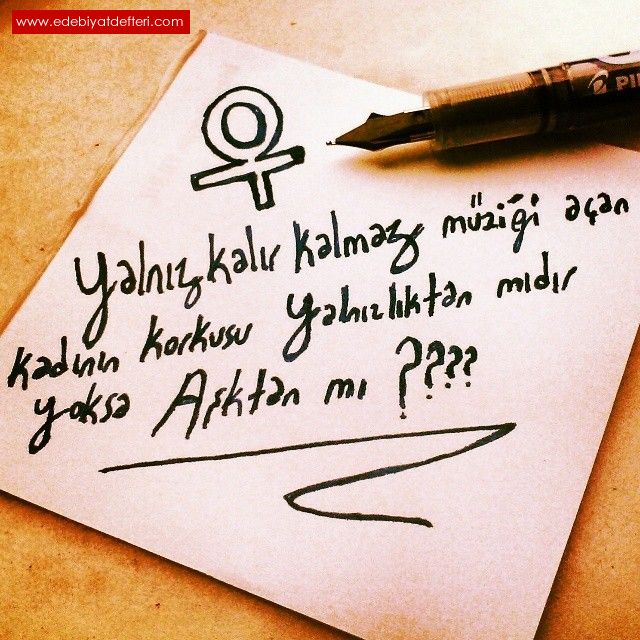 www.edebiyatdefteri.com
PI
Yalnız kalır kalmaz müziği açan
kadının korkusu yalnızlıktan mıdır
yoksa Aşktan mı ????